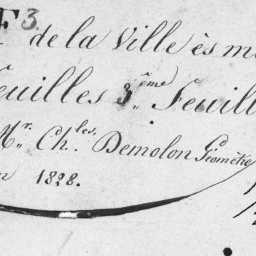 F 3 de la Ville ès m
euilles 3.ème Feuill
Mr. Ch.les Demolon Géomètre
n 1828.